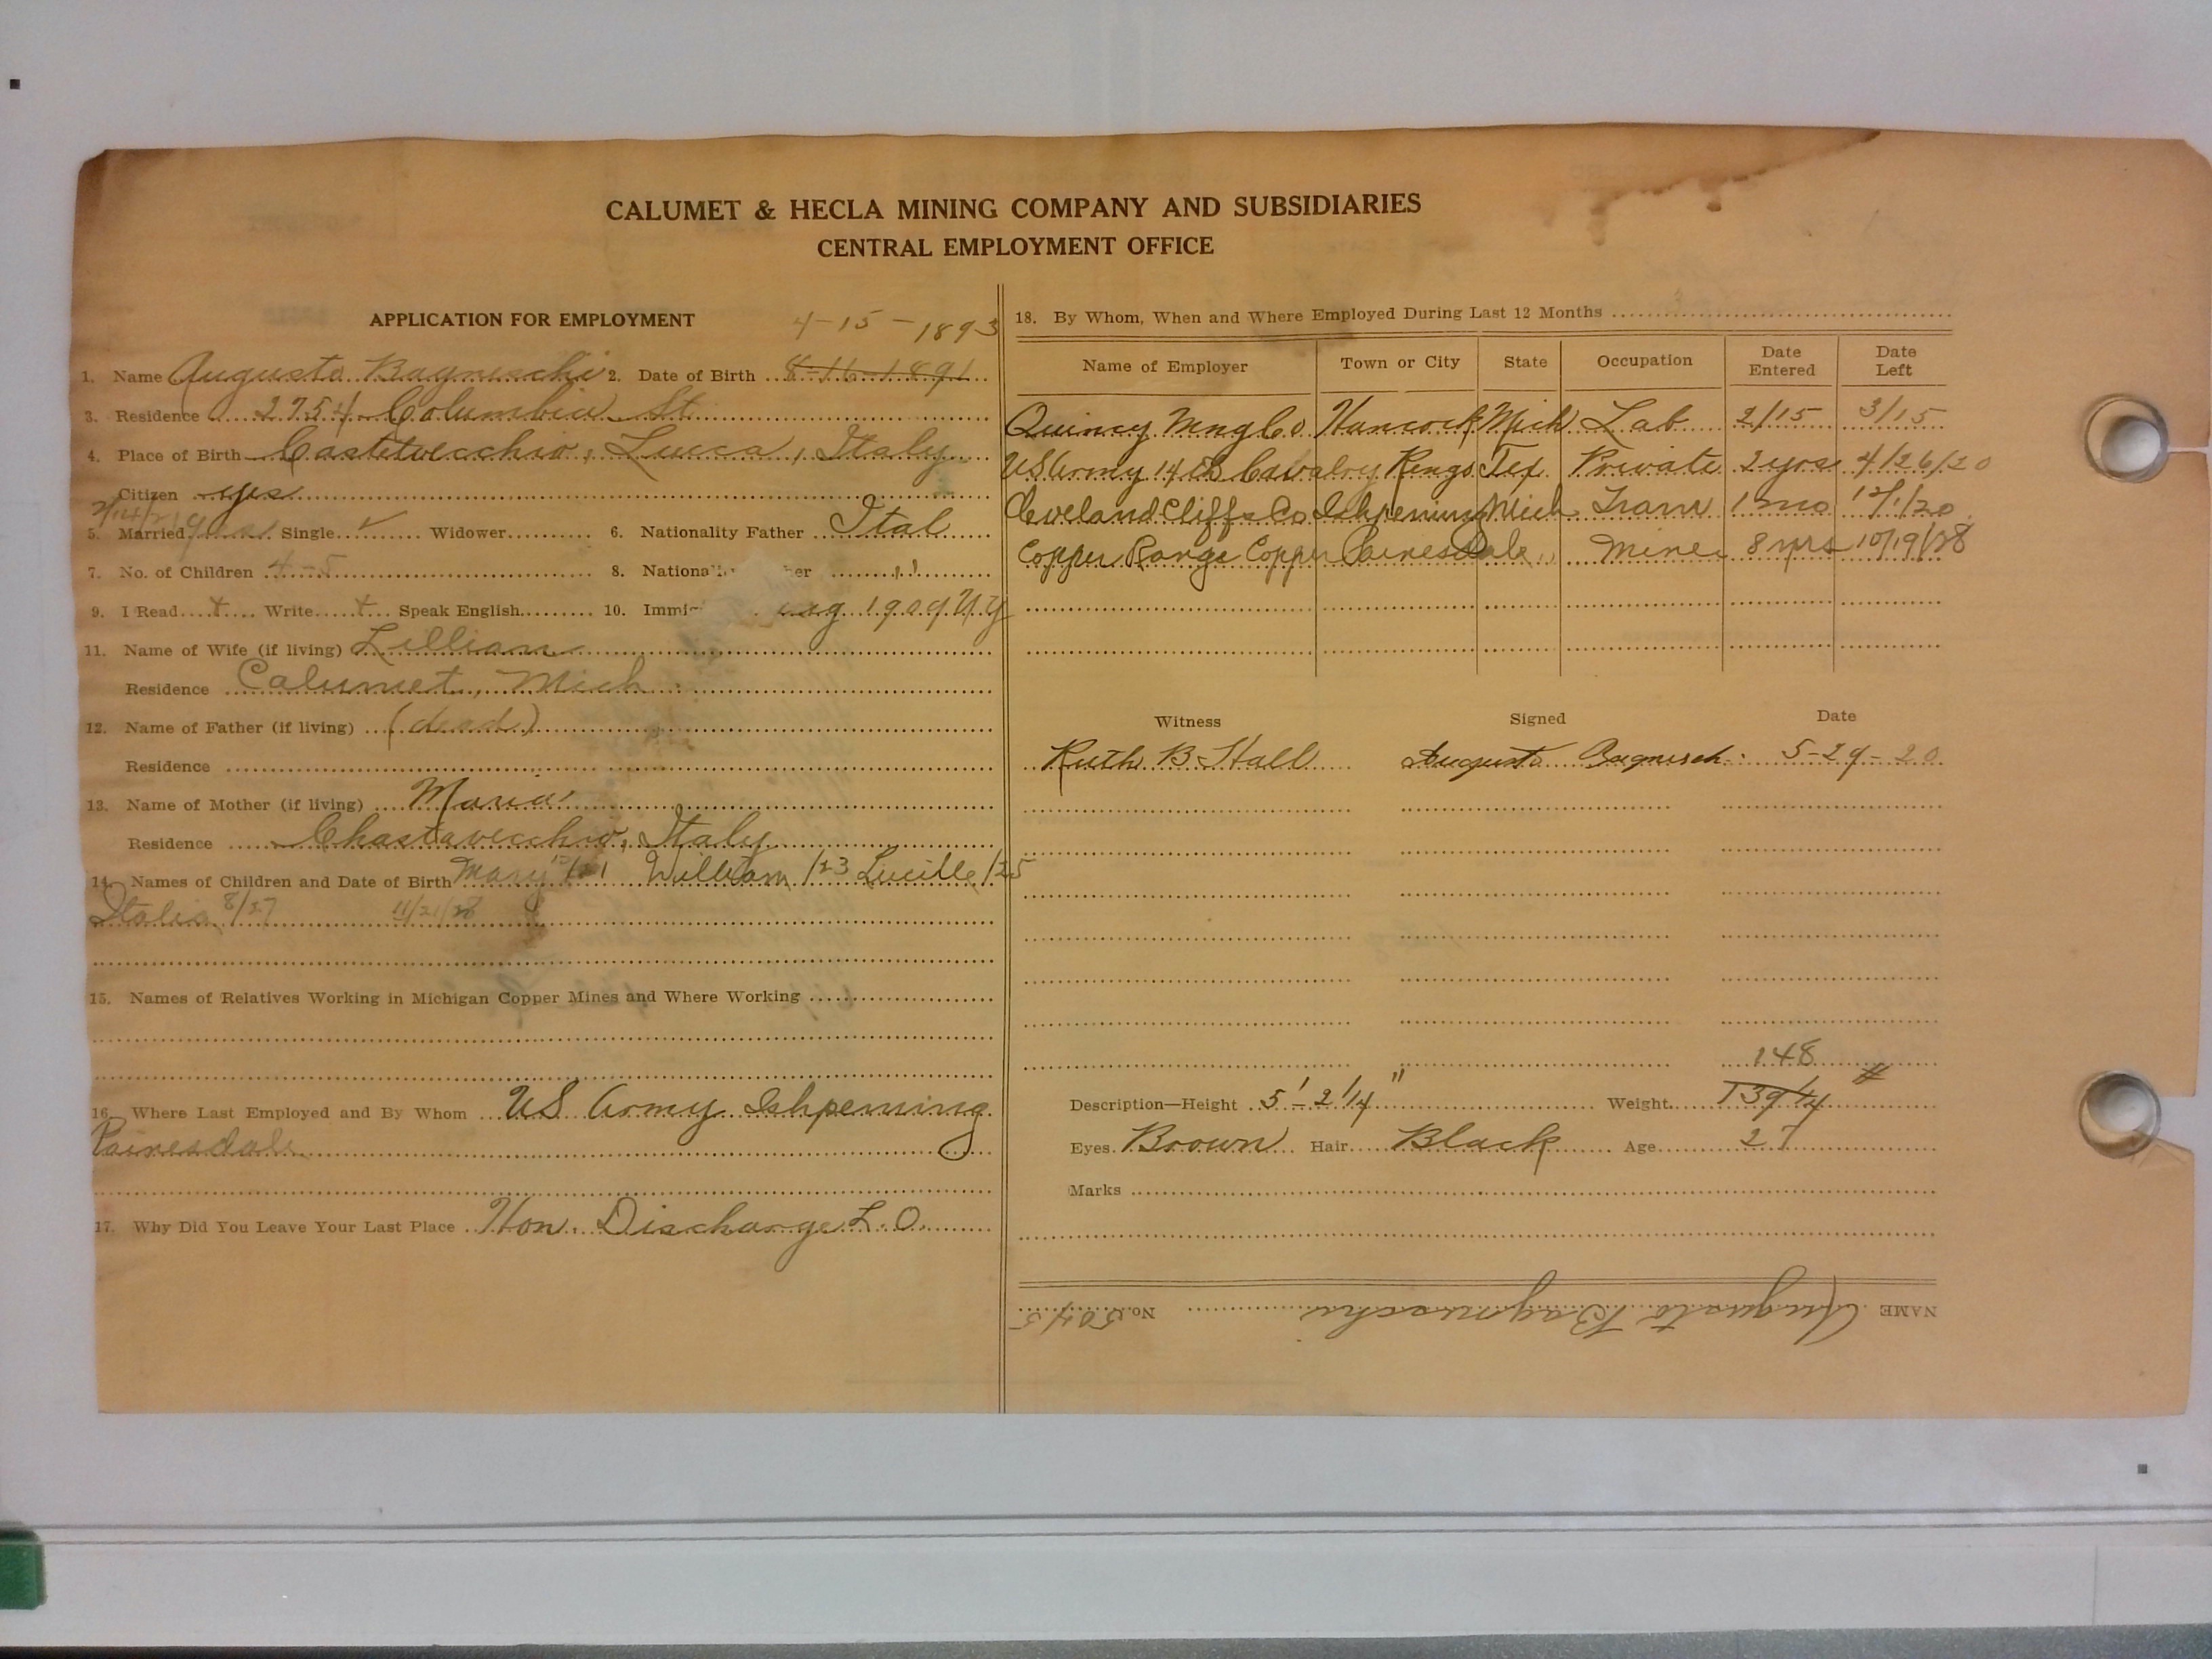 CALUMET & HECLA MINING COMPANY AND SUBSIDIARIES
CENTRAL EMPLOYMENT OFFICE
APPLICATION FOR EMPLOYMENT
4-15-1893
1. Name Augusto Bagneschi 2. Date of Birth 8-16-1891
3. Residence 2754 Columbia St
4. Place of Birth Castelvecchio, Lucca, Italy
Citizen yes
2/14/21
5. Married yes Single ✓ Widower 6. Nationality Father Ital
7. No. of Children 4-5 8. Nationa her "
9. I Read + Write + Speak English 10. Immi 1909 N.Y
11. Name of Wife (if living) Lillian
Residence Calumet, Mich
12. Name of Father (if living) (dead)
Residence
13. Name of Mother (if living) Maria
Residence Chastavecchio, Italy
14. Names of Children and Date of Birth Mary /21 William /23 Lucille /25
Italia 8/27 11/21/28
15. Names of Relatives Working in Michigan Copper Mines and Where Working
16. Where Last Employed and By Whom US Army Ishpeming
Painesdale
17. Why Did You Leave Your Last Place Hon. Discharge L.O.
18. By Whom, When and Where Employed During Last 12 Months
Name of Employer Town or City State Occupation Date Entered Date Left
Quincy Mng Co Hancock Mich Lab 2/15 3/15
US Army 14th Cavalry Rings Tex Private 2 yrs 4/26/20
Cleveland Cliffs Co Ishpeming Mich Tram 1 mo 12/1/20
Copper Range Copper Painesdale " Miner 8 yrs 10/19/28
Witness Signed Date
Ruth B Hall Augusto Bagnesch 5-29-20
148
Description—Height 5'-2 1/4" Weight 139 1/4 #
Eyes Brown Hair Black Age 27
Marks
NAME Augusto Bagneschi No. 5045